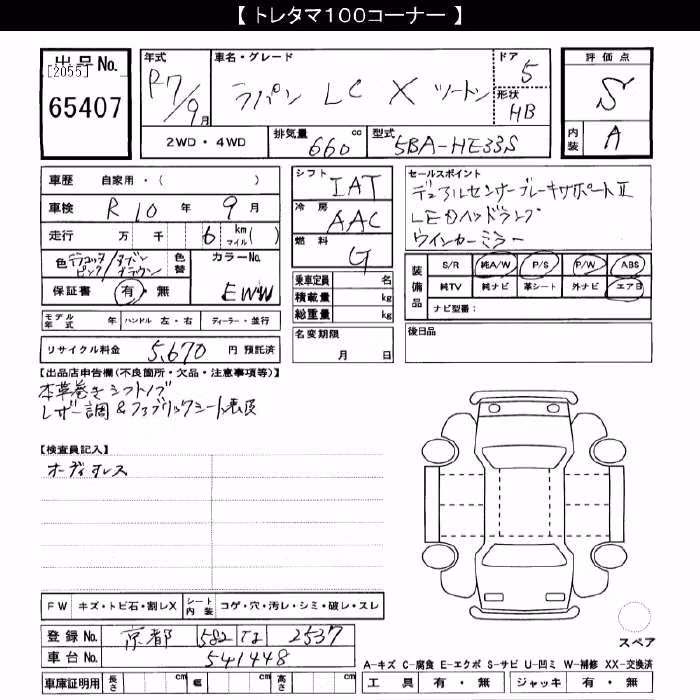 【 トレタマ100コーナー 】
出品No. [2055] 65407
年式 R7/9月
車名・グレード ラパン LC X ツートン
ドア 5
形状 HB
2WD・4WD
排気量 660 cc
型式 5BA-HE33S
評価点 S
内装 A
車歴 自家用・( )
車検 R10年 9月
走行 万 千 6 km マイル( )
色 テラコッタピンク/アーバンブラウン 色替
カラーNo. EWW
保証書 有・無
モデル年式 年 ハンドル 左・右 ディーラー・並行
リサイクル料金 5,670 円 預託済
シフト IAT
冷房 AAC
燃料 G
乗車定員 名
積載量 kg
総重量 kg
名変期限 月 日
セールスポイント
デュアルセンサーブレーキサポートⅡ
LEDヘッドランプ
ウインカーミラー
装備品 S/R 純A/W P/S P/W ABS
純TV 純ナビ 革シート 外ナビ エア日
ナビ型番:
後日品
【出品店申告欄(不良箇所・欠品・注意事項等)】
本革巻きシフトノブ
レザー調&ファブリックシート表皮
【検査員記入】
オーディオレス
FW キズ・トビ石・割レX シート内装 コゲ・穴・汚レ・シミ・破レ・スレ
登録No. 京都 582 2537
車台No. 541448
車庫証明用 長さ cm 幅 cm 高さ cm
スペア
A-キズ C-腐食 E-エクボ S-サビ U-凹ミ W-補修 XX-交換済
工具 有・無 ジャッキ 有・無